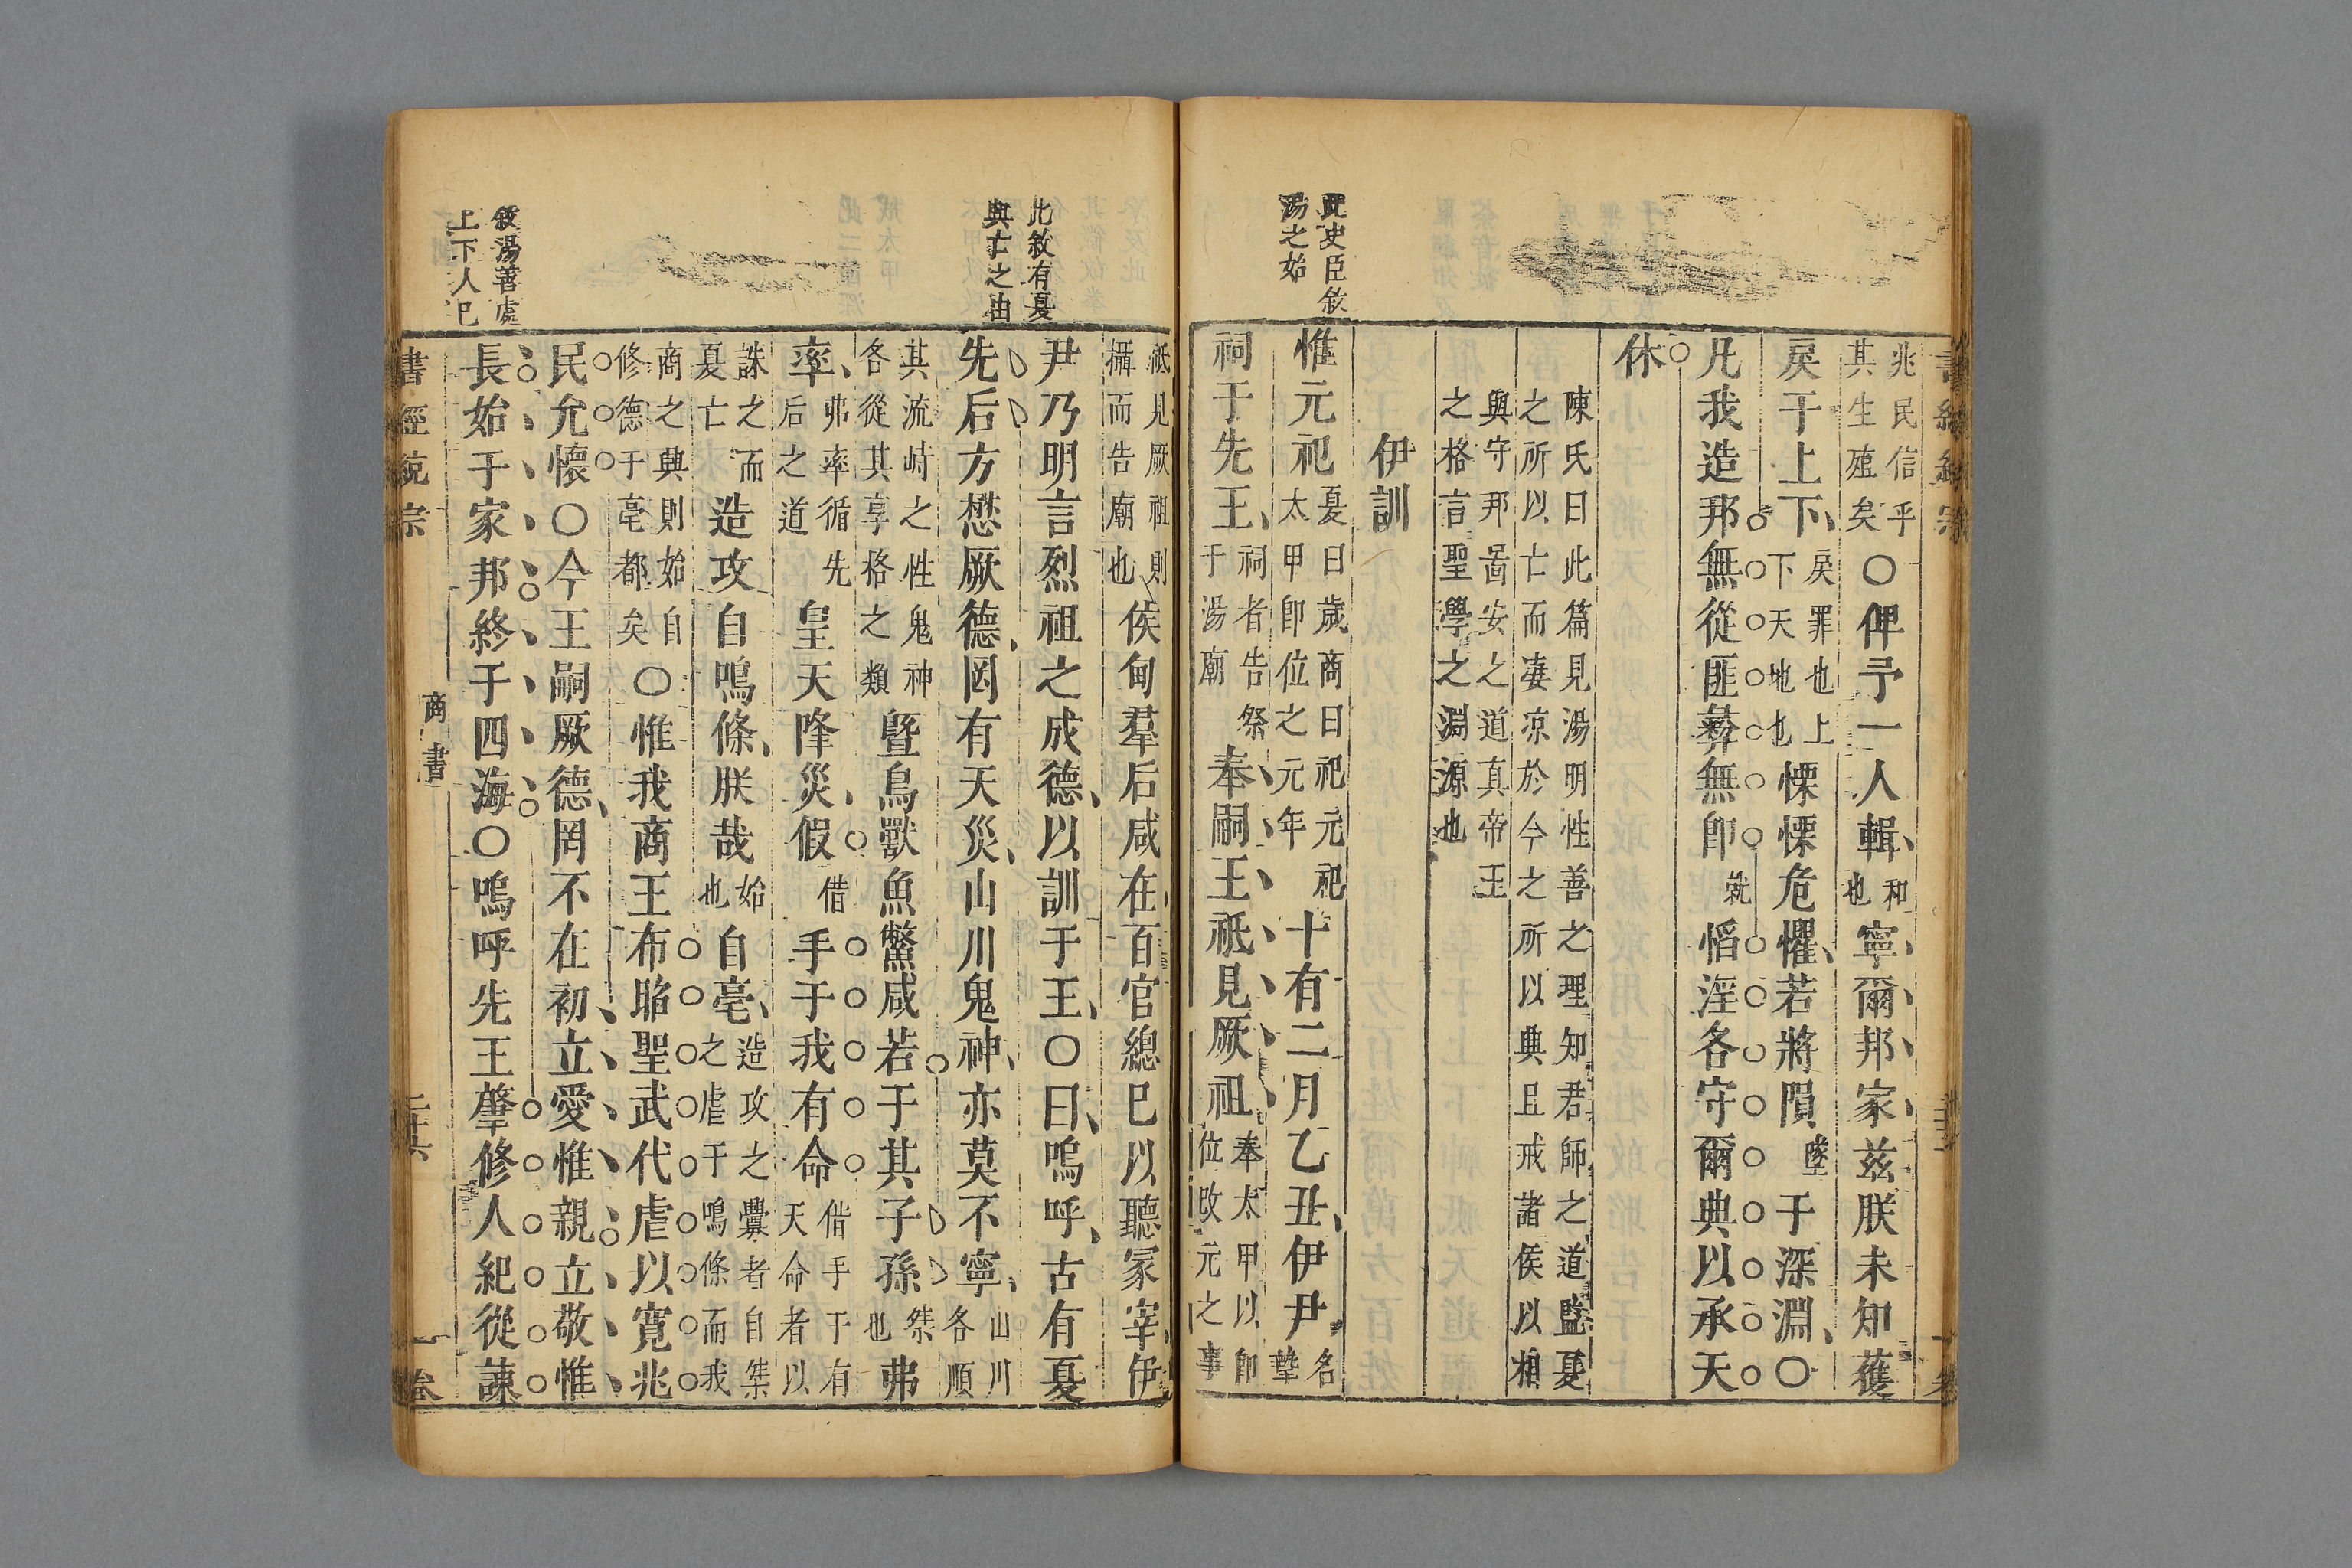 此史臣敘
湯之始
兆民信乎
其生殖矣
○俾予一人輯
和
也
寧爾邦家兹朕未知獲
戾于上下
戾罪也上
下天地也
慄慄危懼若將隕
墜
于深淵○
凡我造邦無從匪彝無即
就
慆淫各守爾典以承天
休
陳氏曰此篇見湯明性善之理知君師之道監夏
之所以亡而凄凉於今之所以典且戒諸侯以相
與守邦啚安之道真帝王
之格言聖學之淵源也
伊訓
惟元祀
夏曰歲商曰祀元祀
太甲即位之元年
十有二月乙丑伊尹
名
摯
祠于先王
祠者告祭
于湯廟
奉嗣王祗見厥祖
奉太甲以即
位改元之事
此敘有夏
與亡之由
敘湯善處
上下人已
祗見厥祖則
攝而告廟也
侯甸羣后咸在百官總已以聽冢宰伊
尹乃明言烈祖之成德以訓于王○曰嗚呼古有夏
先后方懋厥德罔有天災山川鬼神亦莫不寧
山川
各順
其流峙之性鬼神
各從其享格之類
暨鳥獸魚鱉咸若于其子孫
桀
也
弗
率
弗率循先
后之道
皇天降災假
借
手于我有命
借手于有
天命者以
誅之而
夏亡
造攻自鳴條朕哉
始
也
自亳
造攻之釁者自桀
之虐于鳴條而我
商之興則始自
修德于亳都矣
○惟我商王布昭聖武代虐以寬兆
民允懷○今王嗣厥德罔不在初立愛惟親立敬惟
長始于家邦終于四海○嗚呼先王肇修人紀從諫
書經
宗
商書
二十六
一卷